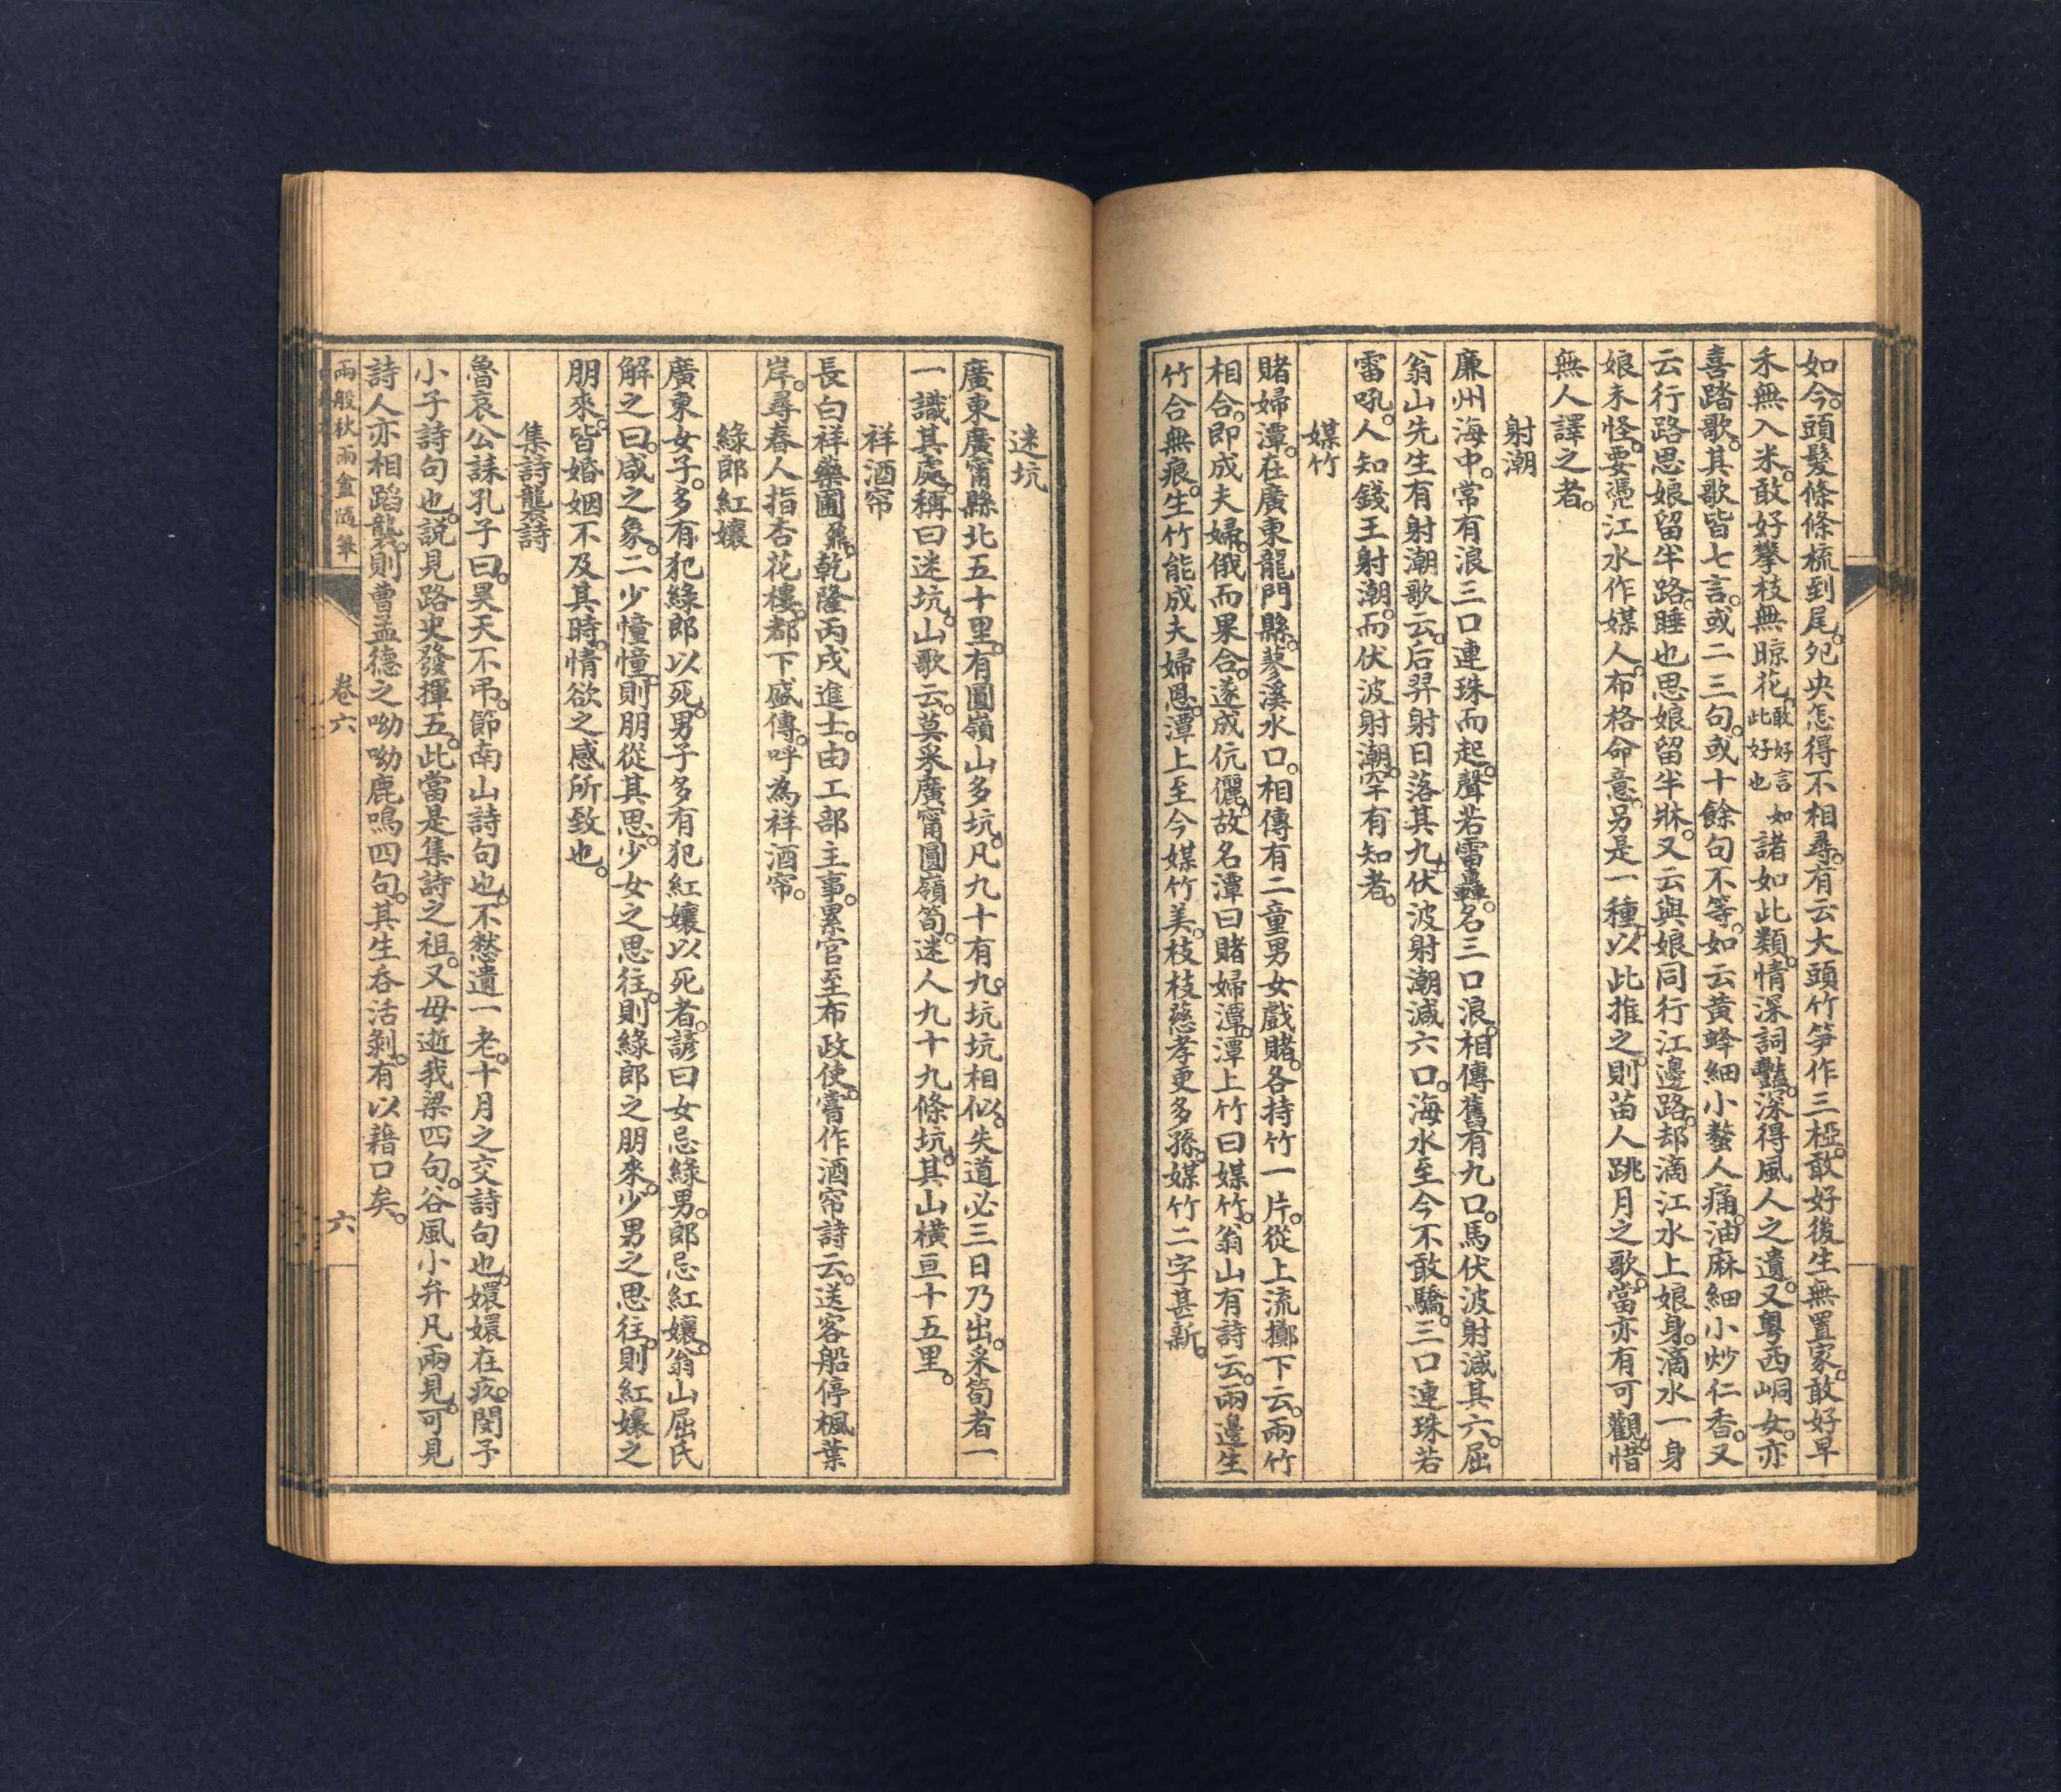 如今。頭髮條條梳到尾。夗央怎得不相尋。有云大頭竹笋作三椏。敢好後生無置家。敢好早
禾無入米。敢好攀枝無晾花。敢好言此好也如諸如此類。情深詞豔。深得風人之遺。又粵西峒女。亦
喜踏歌。其歌皆七言。或二三句。或十餘句不等。如云黃蜂細小螫人痛。油麻細小炒仁香。又
云行路思娘留半路。睡也思娘留半牀。又云與娘同行江邊路。却滴江水上娘身。滴水一身
娘未怪。要凴江水作媒人。布格命意。另是一種。以此推之。則苗人跳月之歌。當亦有可觀。惜
無人譯之者。
射潮
廉州海中。常有浪三口連珠而起。聲若雷轟。名三口浪。相傳舊有九口。馬伏波射減其六。屈
翁山先生有射潮歌云。后羿射日落其九。伏波射潮減六口。海水至今不敢驕。三口連珠若
雷吼。人知錢王射潮。而伏波射潮。罕有知者。
媒竹
賭婦潭。在廣東龍門縣。蓼溪水口。相傳有二童男女戲賭。各持竹一片。從上流擲下云。兩竹
相合。即成夫婦。俄而果合。遂成伉儷。故名潭曰賭婦潭。潭上竹曰媒竹。翁山有詩云。兩邊生
竹合無痕。生竹能成夫婦恩。潭上至今媒竹美。枝枝慈孝更多孫。媒竹二字甚新。
迷坑
廣東廣甯縣北五十里。有圓嶺山多坑。凡九十有九。坑坑相似。失道必三日乃出。采筍者一
一識其處。稱曰迷坑。山歌云。莫采廣甯圓嶺筍。迷人九十九條坑。其山橫亘十五里。
祥酒帘
長白祥藥圃鼐。乾隆丙戌進士。由工部主事。累官至布政使。嘗作酒帘詩云。送客船停楓葉
岸。尋春人指杏花樓。都下盛傳。呼為祥酒帘。
綠郎紅孃
廣東女子。多有犯綠郎以死。男子多有犯紅孃以死者。諺曰女忌綠男。郎忌紅孃。翁山屈氏
解之曰。咸之象。二少憧憧。則朋從其思。少女之思往。則綠郎之朋來。少男之思往。則紅孃之
朋來。皆婚姻不及其時。情欲之感所致也。
集詩襲詩
魯哀公誄孔子曰。昊天不弔。節南山詩句也。不憖遺一老。十月之交詩句也。嬛嬛在疚。閔予
小子詩句也。說見路史發揮五。此當是集詩之祖。又毋逝我梁四句。谷風小弁凡兩見。可見
詩人亦相蹈襲。則曹孟德之呦呦鹿鳴四句。其生吞活剝。有以藉口矣。
兩般秋雨盦隨筆 卷六 六